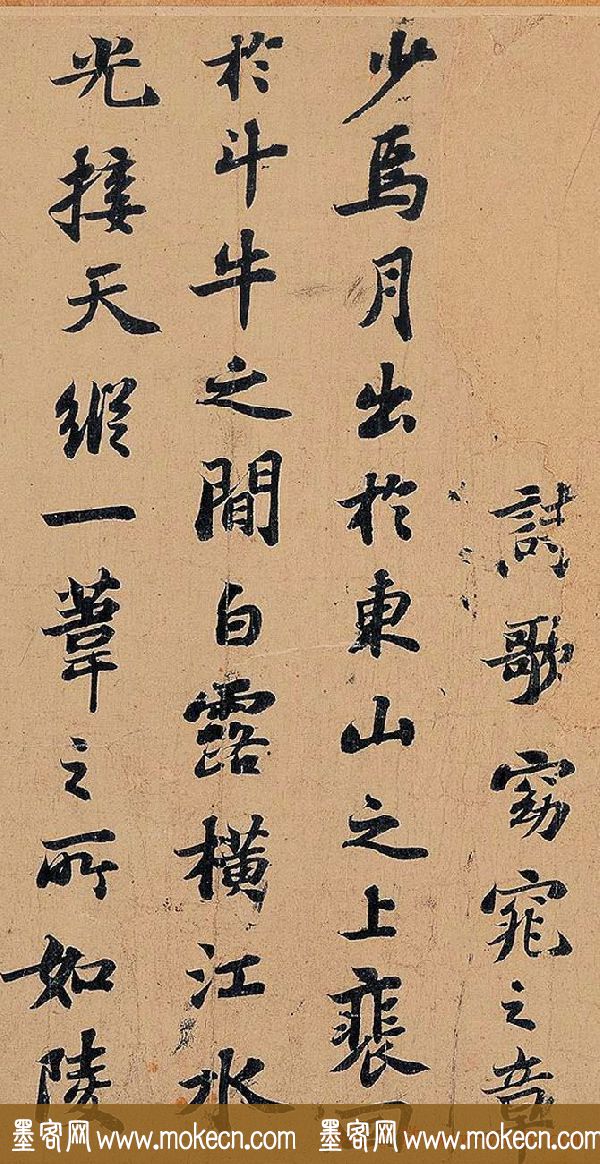 詩歌窈窕之章
少焉月出於東山之上裴
於斗牛之間白露橫江水
光接天縱一葦之所如陵
墨客网 www.mokecn.com 墨客网 www.mokecn.com